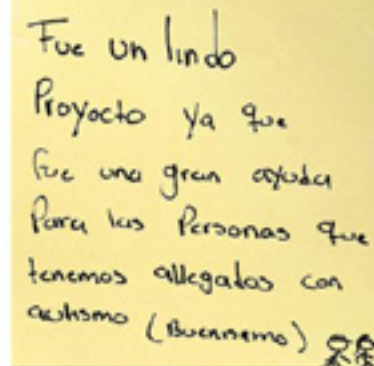 Fue un lindo
Proyecto ya que
fue una gran ayuda
Para las Personas que
tenemos allegados con
autismo (Buenisimo)